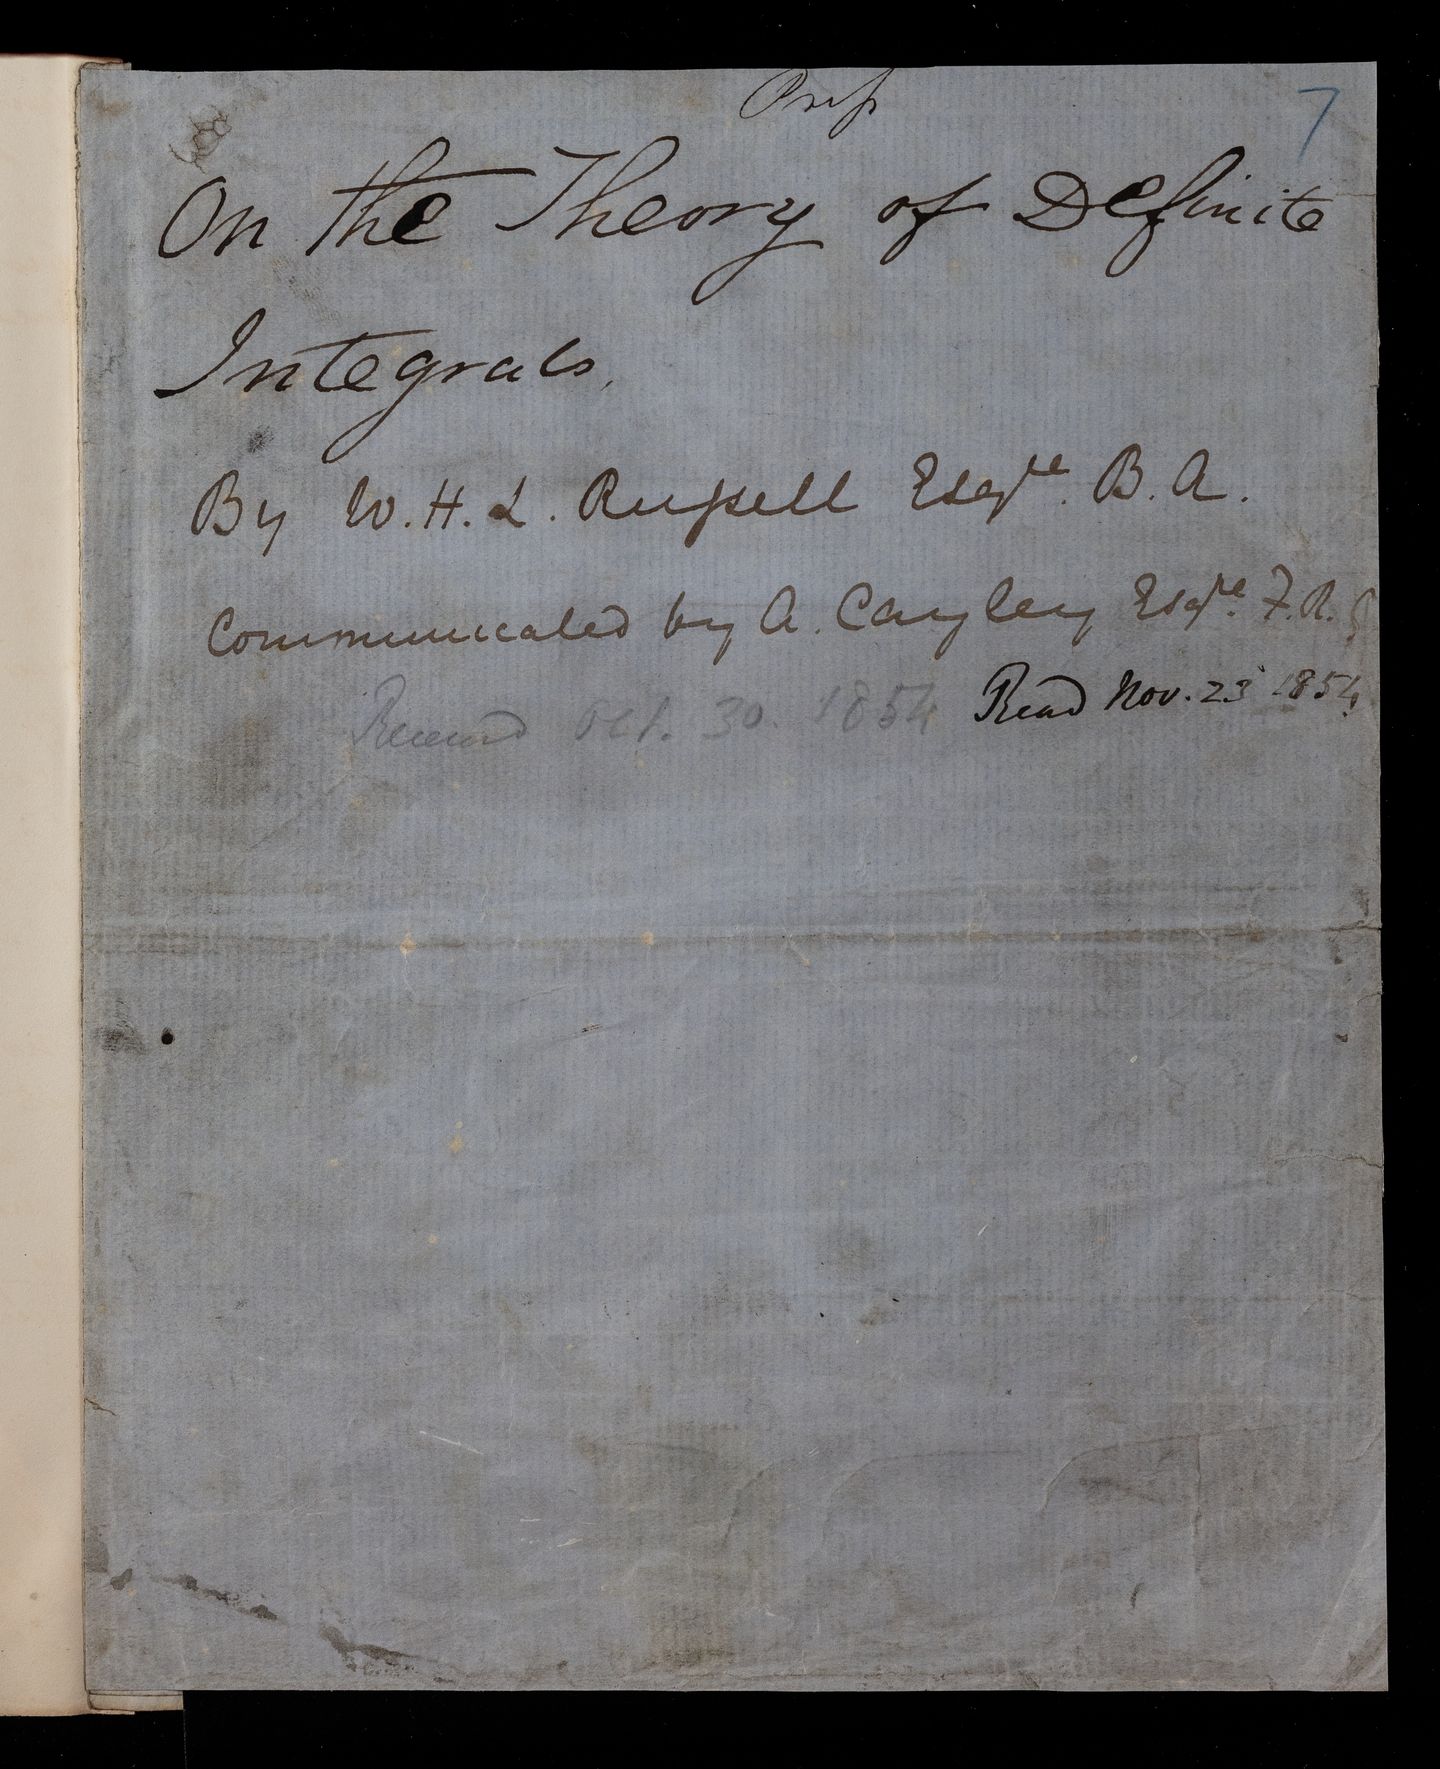 7
On the Theory of Definite
Integrals.
By W. H. L. Russell Esqre. B. A.
Communicated by A. Cayley Esqre. F. R. S
Received Oct. 30. 1854 Read Nov. 23 1854.